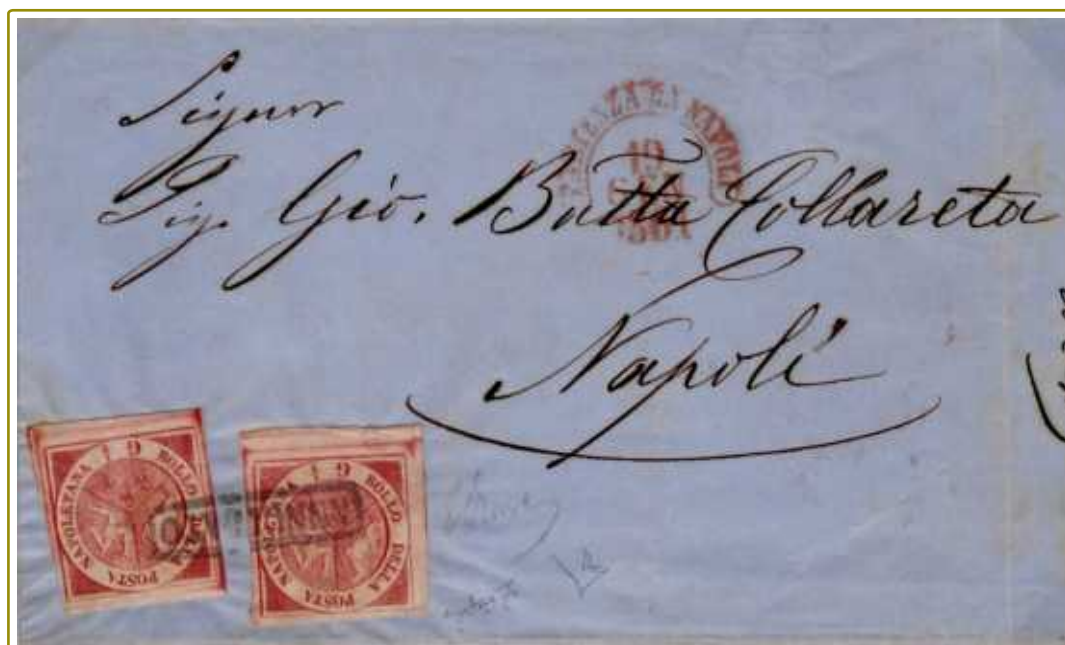 Signor
Sig. Gio. Batta Collareta
Napoli
19
G 1 BOLLO DELLA POSTA NAPOLETANA
G 1 BOLLO DELLA POSTA NAPOLETANA
ANNULLATO